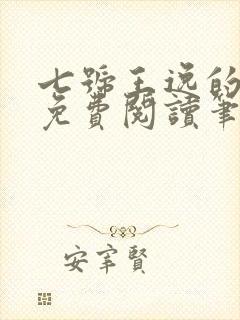 七號王逸的
免費閱讀筆
安宰賢